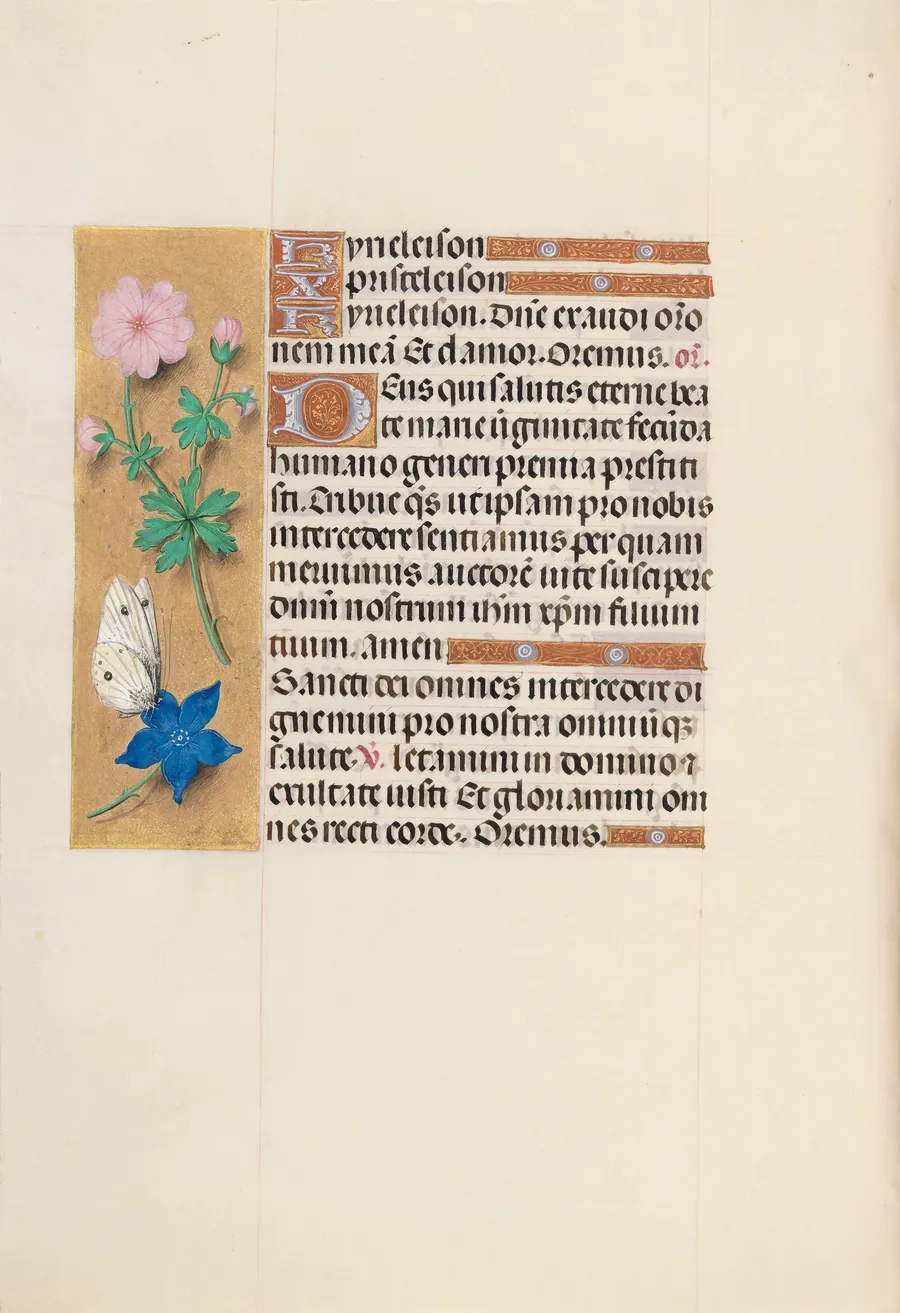 Kyrieleison
Xpristeleison
Kyrieleison. Dñe exaudi oro
nem meā Et clamor. Oremus. or̄.
DEus qui salutis eterne bea
te marie ũginitate fecūda
humano generi premia prestiti
sti. Tribue qs̄ ut ipsam pro nobis
intercedere sentiamus per quam
meruimus auctorē uite suscipere
dnm̄ nostrum ihm̄ xpm̄ filium
tuum. amen
Sancti dei omnes intercedere di
gnemini pro nostra omniūqꝫ
salute. v̄. letamini in domino ⁊
exultate iusti Et gloriamini om
nes recti corde. Oremus.